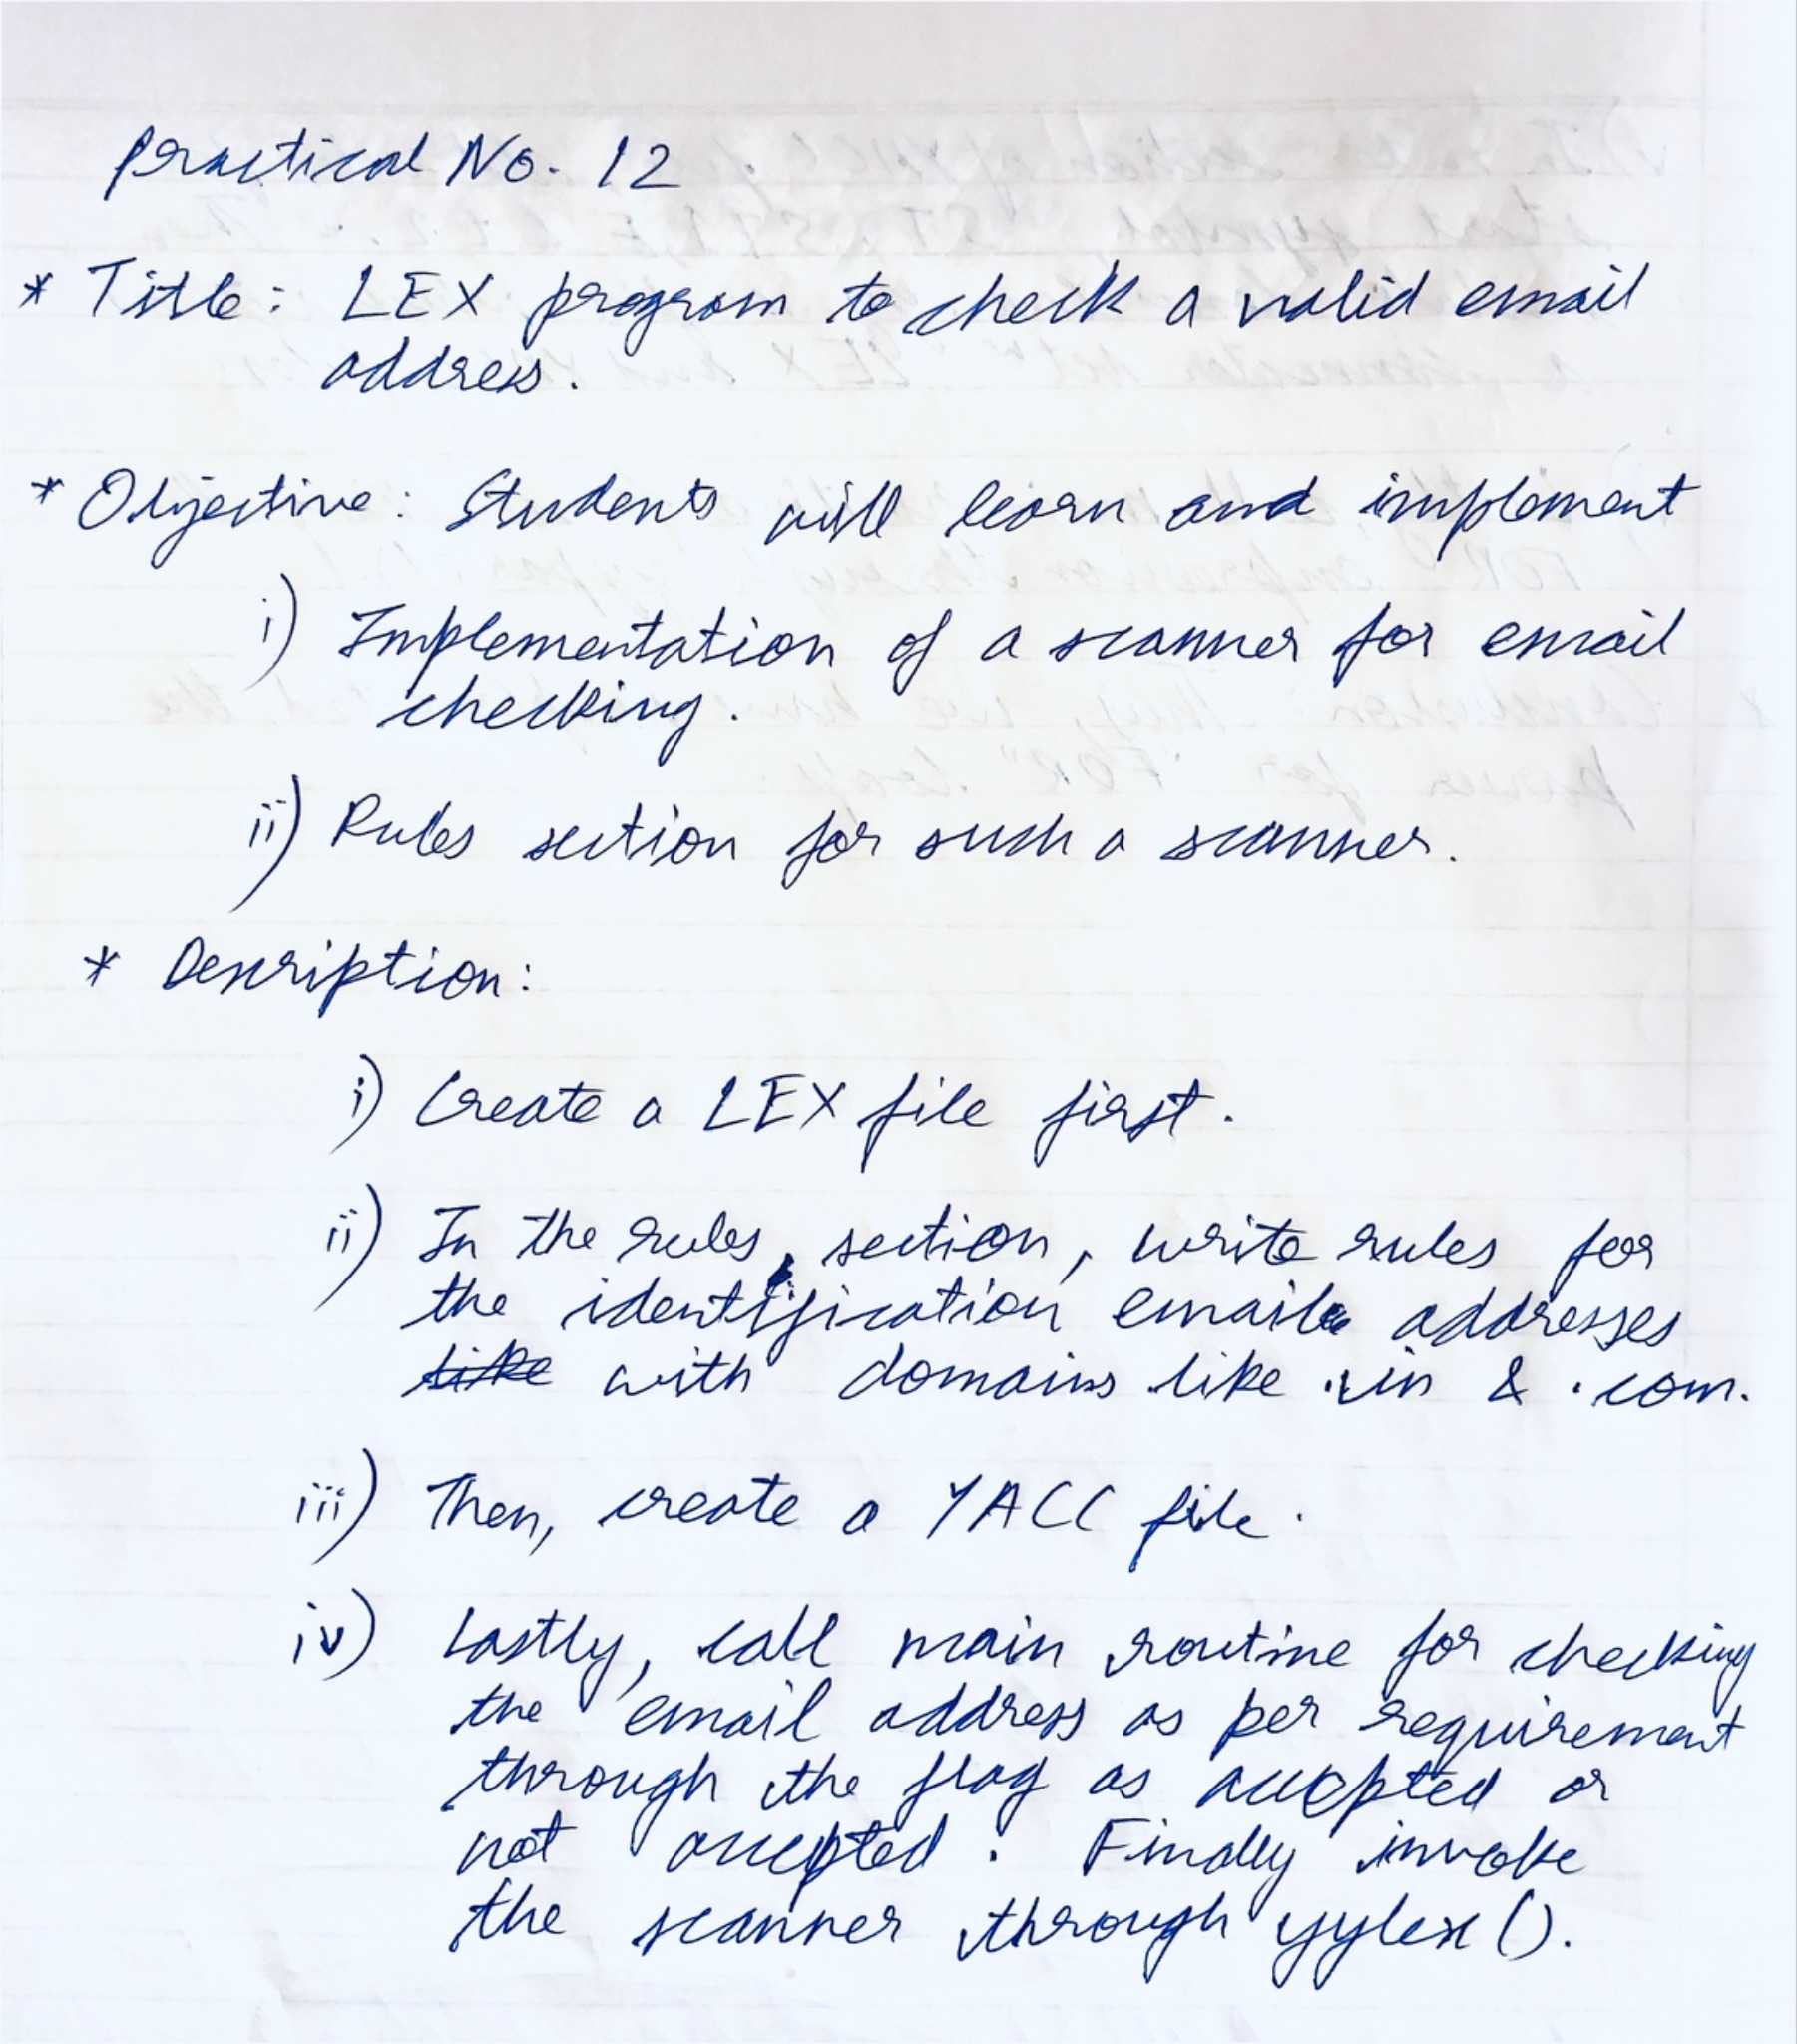 Practical No. 12
* Title: LEX program to check a valid email
address.
* Objective: Students will learn and implement
i) Implementation of a scanner for email
checking.
ii) Rules section for such a scanner.
* Description:
i) Create a LEX file first.
ii) In the rules, section, write rules for
the identification email addresses
like with domains like .in & .com.
iii) Then, create a YACC file.
iv) Lastly, call main routine for checking
the email address as per requirement
through the flag as accepted or
not accepted. Finally invoke
the scanner through yylex().